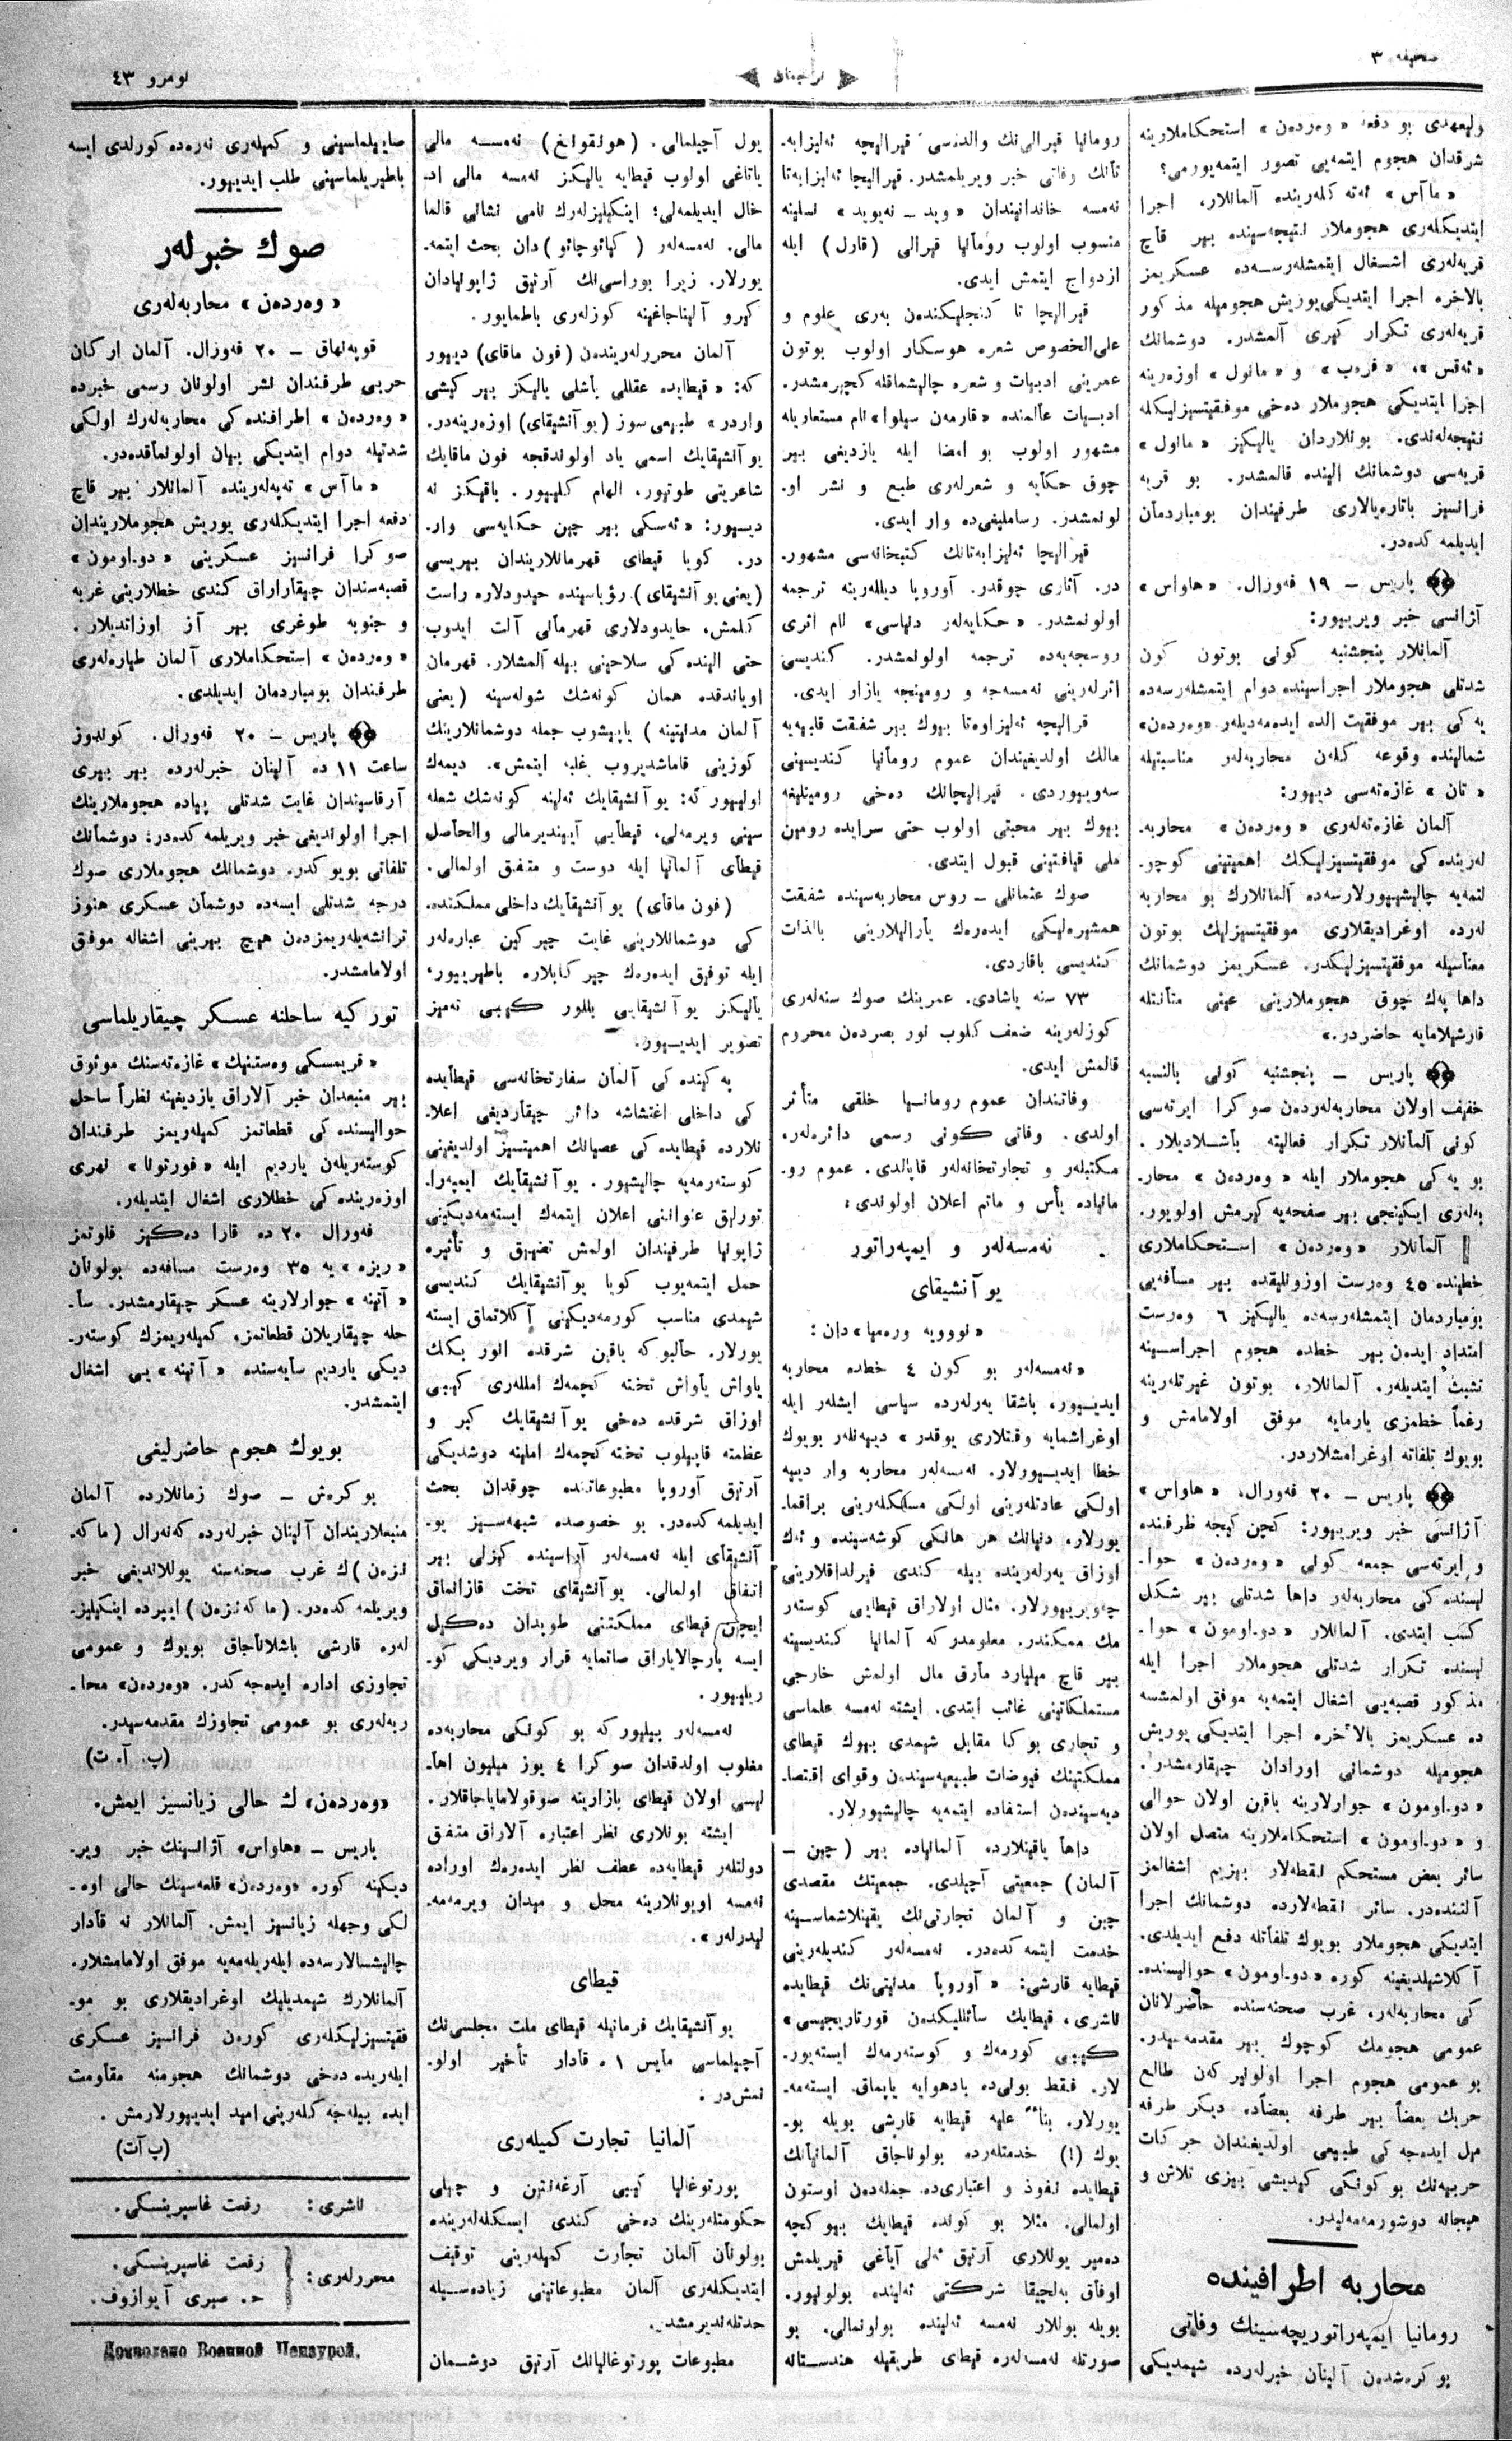 صحیفه ۳
ترجمان
نومرو ٤٣
ولیعهدی بو دفعه «وەردەن» استحکاملارینه
شرقدان هجوم ایتمه‌یی تصور ایتمه‌یورمی؟
«ماآس» ئەتەکلەرینده آلمانلار، اجرا
ایتدیکلەری هجوملار نتیجەسینده بیر قاچ
قریەلەری اشغال ایتمشلەرسەده عسکریمز
بالاخره اجرا ایتدیکی یوریش هجومیله مذکور
قریەلەری تکرار کیری آلمشدر. دوشمانك
«ئەقس»، «فرەب» و «مانول» اوزەرینه
اجرا ایتدیکی هجوملار دەخی موفقیتسیزلیکله
نتیجەلەندی. بونلاردان یالیکیز «مانول»
قریەسی دوشمانك الینده قالمشدر. بو قریه
فرانسیز باتارەیالاری طرفیندان بومباردمان
ایدیلمەکدەدر.
پاریس – ۱۹ فەورال. «هاواس»
آژانسی خبر ویریپور:
آلمانلار پنجشنبه کونی بوتون کون
شدتلی هجوملار اجراسینده دوام ایتمشلەرسەده
یەکی بیر موفقیت الده ایدەمەدیلەر. «وەردەن»
شمالینده وقوعه کلەن محاربەلەر مناسبتیله
«تان» غازەتەسی دیپور:
آلمان غازەتەلەری «وەردەن» محاربه‌
لەرینده کی موفقیتسیزلیکك اهمیتینی کوچو‌
لتمەیه چالیشیپورلارسەده آلمانلارك بو محاربه
لەرده اوغرادیقلاری موفقیتسیزلیك بوتون
معناسیله موفقیتسیزلیکدر. عسکریمز دوشمانك
داها پەك چوق هجوملارینی عینی متانتله
قارشیلامایه حاضردر.»
پاریس – پنجشنبه کونی بالنسبه
خفیف اولان محاربەلەردەن صوکرا ایرتەسی
کونی آلمانلار تکرار فعالیته باشلادیلار.
بو یەکی هجوملار ایله «وەردەن» محار‌
بەلەری ایکینجی بیر صفحەیه کیرمش اولویور.
آلمانلار «وەردەن» استحکاملاری
خطینده ٤٥ وەرست اوزونلیقده بیر مسافەیی
بومباردمان ایتمشلەرسەده یالیکیز ٦ وەرست
امتداد ایدەن بیر خطده هجوم اجراسینه
تشبث ایتدیلەر. آلمانلار، بوتون غیرتلەرینه
رغماً خطمزی یارمایه موفق اولامامش و
بویوك تلفاته اوغرامشلاردر.
پاریس – ۲۰ فەورال، «هاواس»
آژانسی خبر ویریپور: کچن کیجه ظرفنده
و ایرتەسی جمعه کونی «وەردەن» حوا‌
لیسنده کی محاربەلەر داها شدتلی بیر شکل
کسب ایتدی. آلمانلار «دو‌.اومون» حوا‌
لیسنده تکرار شدتلی هجوملار اجرا ایله
مذکور قصبەیی اشغال ایتمەیه موفق اولمشسه
ده عسکریمز بالآخره اجرا ایتدیکی یوریش
هجومیله دوشمانی اورادان چیقارمشدر.
«دو‌.اومون» جوارلارینه یاقین اولان حوالی
و «دو‌.اومون» استحکاملارینه متصل اولان
سائر بعض مستحکم نقطەلار بیزیم اشغالمز
آلتندەدر. سائر نقطەلارده دوشمانك اجرا
ایتدیکی هجوملار بویوك تلفاتله دفع ایدیلدی.
آکلاشیلدیغینه کوره «دو‌.اومون» حوالیسنده‌
کی محاربەلەر، غرب صحنەسنده حاضرلانان
عمومی هجومك کوچوك بیر مقدمەسیدر.
بو عمومی هجوم اجرا اولولیرکەن طالع
حربك بعضاً بیر طرفه بعضاًده دیکر طرفه
میل ایدەجەکی طبیعی اولدیغندان حرکات
حربیەنك بو کونکی کیدیشی بیزی تلاش و
هیجانه دوشورمەمەلیدر.
محاربه اطرافینده
رومانیا ایمپەراتوریچەسینك وفاتی
بوکرەشدەن آلینان خبرلەرده شیمدیکی
رومانیا قیرالی‌نك والدەسی قیرالیچه ئەلیزابه‌
تانك وفاتی خبر ویریلمشدر. قیرالیچا ئەلیزابەتا
نەمسه خاندانیندان «وید – نەیوید» نسلینه
منسوب اولوب رومانیا قیرالی (قارل) ایله
ازدواج ایتمش ایدی.
قیرالیچا تا کنجلیکندەن بەری علوم و
علی‌الخصوص شعره هوسکار اولوب بوتون
عمرینی ادبیات و شعره چالیشماقله کچیرمشدر.
ادبیات عالمنده «قارمەن سیلوا» نام مستعاریله
مشهور اولوب بو امضا ایله یازدیغی بیر
چوق حکایه و شعرلەری طبع و نشر او‌
لونمشدر. رساملیغی‌ده وار ایدی.
قیرالیچا ئەلیزابەتانك کتبخانەسی مشهور‌
در. آثاری چوقدر. آوروپا دیللەرینه ترجمه
اولونمشدر. «حکایەلەر دنیاسی» نام اثری
روسجەیەده ترجمه اولونمشدر. کندیسی
اثرلەرینی نەمسەجه و رومینجه یازار ایدی.
قرالیچه ئەلیزاوەتا بیوك بیر شفقت قلبیەیه
مالك اولدیغیندان عموم رومانیا کندیسینی
سەویپوردی. قیرالیچانك دەخی رومینلیغه
بیوك بیر محبتی اولوب حتی سرایده رومین
ملی قیافتینی قبول ایتدی.
صوك عثمانلی – روس محاربەسینده شفقت
همشیرەلیکی ایدەرەك یارالیلارینی بالذات
کندیسی باقاردی.
۷۳ سنه یاشادی. عمرینك صوك سنەلەری
کوزلەرینه ضعف کلوب نور بصردەن محروم
قالمش ایدی.
وفاتندان عموم رومانیا خلقی متأثر
اولدی. وفاتی کونی رسمی دائرەلەر،
مکتبلەر و تجارتخانەلەر قاپالدی. عموم رو‌
مانیاده یأس و ماتم اعلان اولوندی.
نەمسەلەر و ایمپەراتور
یوآنشیقای
«نووویه ورەمیا»دان:
«نەمسەلەر بو کون ٤ خطده محاربه
ایدییپور، باشقا یەرلەرده سیاسی ایشلەر ایله
اوغراشمایه وقتلاری یوقدر» دییەنلەر بویوك
خطا ایدییپورلار. نەمسەلەر محاربه وار دییه
اولکی عادتلەرینی اولکی مسلکلەرینی براقما‌
یورلار، دنیانك هر هانکی کوشەسینده و ئەك
اوزاق یەرلەرینده بیله کندی فیرلداقلارینی
چەویریپورلار. مثال اولاراق قیطایی کوستەر
مك ممکندر. معلومدر که آلمانیا کندیسینه
بیر قاچ میلیارد مارق مال اولمش خارجی
مستملکاتینی غائب ایتدی. ایشته نەمسه علماسی
و تجاری بوکا مقابل شیمدی بیوك قیطای
مملکتینك فیوضات طبیعیەسیندەن وقوای اقتصا‌
دیەسیندەن استفاده ایتمەیه چالیشیپورلار.
داها یاقینلارده آلمانیاده بیر (چین –
آلمان) جمعیتی آچیلدی. جمعیتك مقصدی
چین و آلمان تجارتی‌نك یقینلاشماسینه
خدمت ایتمەکدەدر. نەمسەلەر کندیلەرینی
قیطایه قارشی: «آوروپا مدنیتی‌نك قیطایده
ناشری، قیطایك سائللیکدەن قورتاریجیسی»
کیبی کورمەك و کوستەرمەك ایستەیور‌
لار. فقط بولی‌ده بادهوایه یاپماق. ایستەمه‌
یورلار. بناءً علیه قیطایه قارشی بویله بو‌
یوك (!) خدمتلەرده بولوناجاق آلمانیانك
قیطایده نفوذ و اعتباری‌ده. جملەدەن اوستون
اولمالی. مثلا بو کونده قیطایك بیوکجه
دەمیر یوللاری آرتیق ئەلی آیاغی قیریلمش
اوفاق بەلجیقا شرکتی ئەلینده بولونیور.
بویله یوللار نەمسه ئەلینده بولونمالی. بو
صورتله نەمسەلەره قیطای طریقیله هندستانه
یول آچیلمالی. (هونقوانغ) نەمسه مالی
یاتاغی اولوب قیطایه یالیکز نەمسه مالی اد‌
خال ایدیلمەلی؛ اینکیلیزلەرك نامی نشانی قالما
مالی. نەمسەلەر (کیائوچائو)دان بحث ایتمه‌
یورلار. زیرا بوراسی‌نك آرتیق ژاپونیادان
کیرو آلیناجاغینه کوزلەری باطمایور.
آلمان محررلەریندەن (فون ماقای) دیپور
که: «قیطایده عقللی باشلی یالیکز بیر کیشی
واردر» طبیعی سوز (یوآنشیقای) اوزەرینەدر.
یوآنشیقایك اسمی یاد اولوندقجه فون ماقایك
شاعریتی طوتیور، الهام کلیپور. باقیکز نه
دیپور: «ئەسکی بیر چین حکایەسی وار‌
در. کویا قیطای قهرمانلاریندان بیریسی
(یعنی یوآنشیقای) رؤیاسینده حیدودلاره راست
کلمش، حایدودلاری قهرمانی آلت ایدوب
حتی الینده کی سلاحینی بیله آلمشلار. قهرمان
اویاندقده همان کونەشك شولەسینه (یعنی
آلمان مدنیتینه) یاپیشوب جمله دوشمانلارینك
کوزینی قاماشدیروب غلبه ایتمش». دیمەك
اولیپور که: یوآنشیقایك ئەلینه کونەشك شعله
سینی ویرمەلی، قیطایی آییندیرمالی والحاصل
قیطای آلمانیا ایله دوست و متفق اولمالی.
(فون ماقای) یوآنشیقایك داخلی مملکتنده‌
کی دوشمانلارینی غایت چیرکین عبارەلەر
ایله توفیق ایدەرەك چیرکابلاره باطیرییور،
یالیکز یوآنشیقایی بللور کیبی تەمیز
تصویر ایدییپور.
پەکینده کی آلمان سفارتخانەسی قیطایده
کی داخلی اغتشاشه دائر چیقاردیغی اعلا‌
نلارده قیطایده کی عصیانك اهمیتسیز اولدیغینی
کوستەرمەیه چالیشیور. یوآنشیقایك ایمپەرا‌
تورلیق عنوانینی اعلان ایتمەك ایستەمەدیکینی
ژاپونیا طرفیندان اولمش تضییق و تأثیره
حمل ایتمەیوب کویا یوآنشیقایك کندیسی
شیمدی مناسب کورمەدیکینی آکلاتماق ایسته
یورلار. حالبوکه یاقین شرقده انور بکك
یاواش یاواش تخته کچمەك امللەری کیبی
اوزاق شرقده دەخی یوآنشیقایك کبر و
عظمته قاپیلوب تخته کچمەك املینه دوشدیکی
آرتیق آوروپا مطبوعاتنده چوقدان بحث
ایدیلمەکدەدر. بو خصوصده شبهەسیز یو‌
آنشیقای ایله نەمسەلەر آراسینده کیزلی بیر
اتفاق اولمالی. یوآنشیقای تخت قازانماق
ایچین قیطای مملکتنی طوپدان دەکیل
ایسه پارچالایاراق صاتمایه قرار ویردیکی کو‌
رییپور.
نەمسەلەر بیلیور که بو کونکی محاربەده
مغلوب اولدقدان صوکرا ٤ یوز میلیون اها‌
لیسی اولان قیطای بازارینه صوقولامایاجاقلار.
ایشته بونلاری نظر اعتباره آلاراق متفق
دولتلەر قیطایەده عطف نظر ایدەرەك اوراده
نەمسه اویونلارینه محل و میدان ویرمەمه‌
لیدرلەر».
قیطای
یوآنشیقایك فرمانیله قیطای ملت مجلسی‌نك
آچیلماسی مایس ۱ ه قادار تأخیر اولو‌
نمش‌در.
آلمانیا تجارت کمیلەری
پورتوغالیا کیبی آرغەنتین و چیلی
حکومتلەرینك دەخی کندی ایسکلەلەرینده
بولونان آلمان تجارت کمیلەرینی توقیف
ایتدیکلەری آلمان مطبوعاتینی زیادەسیله
حدتلەندیرمشدر.
مطبوعات پورتوغالیانك آرتیق دوشمان
صاییلماسینی و کمیلەری نەرەده کورلدی ایسه
باطیریلماسینی طلب ایدیپور.
صوك خبرلەر
«وەردەن» محاربەلەری
قوپەنهاق – ۲۰ فەورال. آلمان ارکان
حربی طرفندان نشر اولونان رسمی خبرده
«وەردەن» اطرافنده کی محاربەلەرك اولکی
شدتیله دوام ایتدیکی بیان اولونماقدەدر.
«ماآس» تەپەلەرینده آلمانلار بیر قاچ
دفعه اجرا ایتدیکلەری یوریش هجوملاریندان
صوکرا فرانسیز عسکرینی «دو‌.اومون»
قصبەسندان چیقاراراق کندی خطلارینی غربه
و جنوبه طوغری بیر آز اوزاتدیلار.
«وەردەن» استحکاملاری آلمان طیارەلەری
طرفندان بومباردمان ایدیلدی.
پاریس – ۲۰ فەورال. کوندوز
ساعت ۱۱ ده آلینان خبرلەرده بیر بیری
آرقاسیندان غایت شدتلی پیاده هجوملارینك
اجرا اولوندیغی خبر ویریلمەکدەدر: دوشمانك
تلفاتی بویوکدر. دوشمانك هجوملاری صوك
درجه شدتلی ایسەده دوشمان عسکری هنوز
ترانشەیلەریمزدەن هیچ بیرینی اشغاله موفق
اولامامشدر.
تورکیه ساحلنه عسکر چیقاریلماسی
«قریمسکی وەستنیك» غازەتەسنك موثوق
بیر منبعدان خبر آلاراق یازدیغینه نظراً ساحل
حوالیسنده کی قطعاتمز کمیلەریمز طرفندان
کوستەریلەن یاردیم ایله «فورتونا» نهری
اوزەرینده کی خطلاری اشغال ایتدیلەر.
فەورال ۲۰ ده قارا دەکیز فلوتمز
«ریزه» یه ۳٥ وەرست مسافەده بولونان
«آتینه» جوارلارینه عسکر چیقارمشدر. سا‌
حله چیقاریلان قطعاتمز، کمیلەریمزك کوستەر‌
دیکی یاردیم سایەسنده «آتینه» یی اشغال
ایتمشدر.
بویوك هجوم حاضرلیغی
بوکرەش – صوك زمانلارده آلمان
منبعلاریندان آلینان خبرلەرده کەنەرال (ماکه‌
نزەن)ك غرب صحنەسنه یوللاندیغی خبر
ویریلمەکدەدر. (ماکەنزەن) ایپرده اینکیلیز‌
لەره قارشی باشلاناجاق بویوك و عمومی
تجاوزی اداره ایدەجەکدر. «وەردەن» محا‌
ربەلەری بو عمومی تجاوزك مقدمەسیدر.
(پ. آ. ت)
«وەردەن» ك حالی زیانسیز ایمش.
پاریس – «هاواس» آژانسینك خبر ویر‌
دیکینه کوره «وەردەن» قلعەسینك حالی اوه‌
لکی وجهله زیانسیز ایمش. آلمانلار نه قادار
چالیشسالارسەده ایلەریلەمەیه موفق اولامامشلار.
آلمانلارك شیمدیلیك اوغرادیقلاری بو مو‌
فقیتسیزلیکلەری کورەن فرانسیز عسکری
ایلەریده دەخی دوشمانك هجومنه مقاومت
ایده بیلەجەکلەرینی امید ایدیپورلارمش.
(پ آت)
ناشری: رفعت غاسپرینسکی.
محررلەری: رفعت غاسپرینسکی.
ح. صبری آیوازوف.
Дозволено Военной Цензурой.